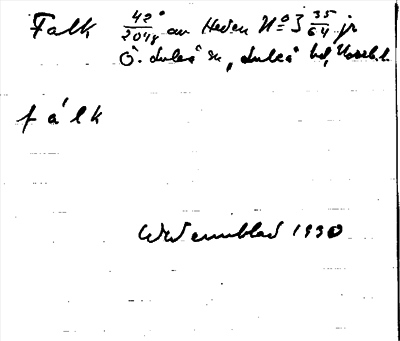 Falk 42/2048 av Heden No 3 35/64 jr
Ö. Luleå sn, Luleå hd, Norrb. l.
fálk
Wennblad 1930